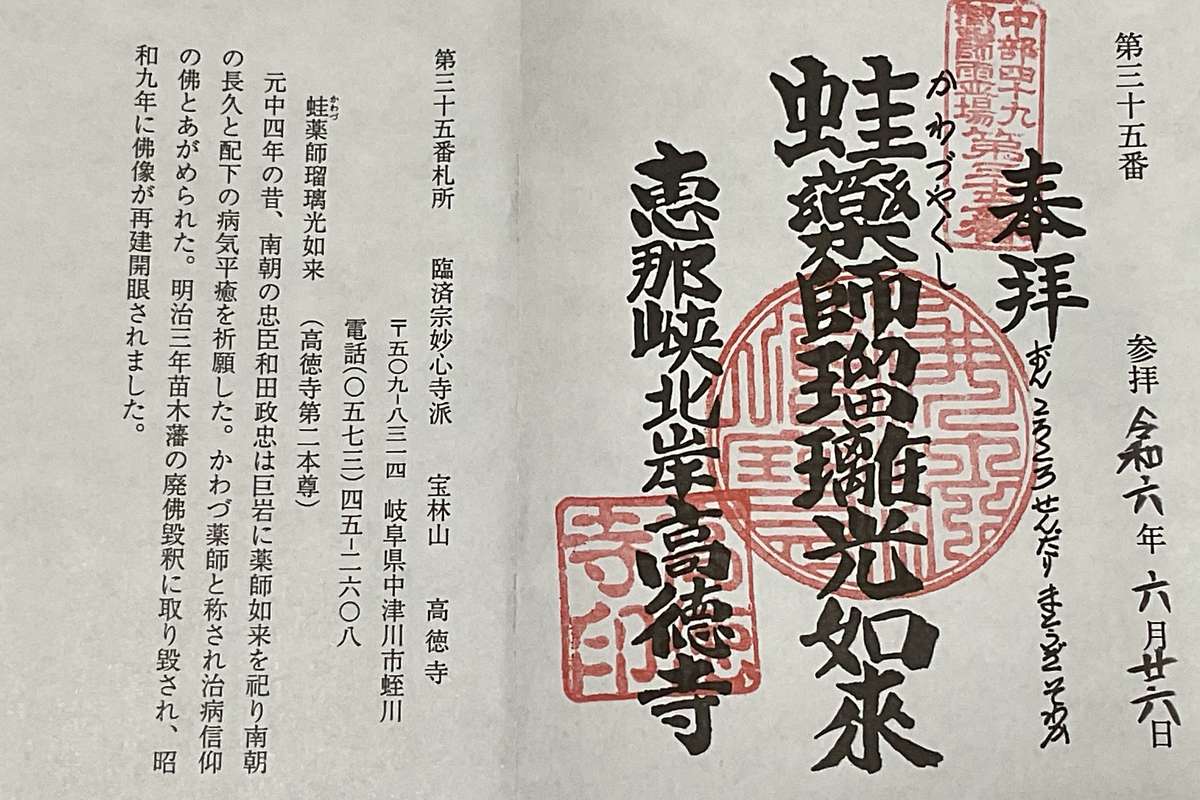 第三十五番
参拝 令和六年六月廿六日
中部四十九
薬師霊場第三十五番
奉拝
おん ころころ せんだり まとうぎ そわか
かわづやくし
蛙藥師瑠璃光如來
恵那峡北岸高徳寺
寺印
第三十五番札所 臨済宗妙心寺派 宝林山 高徳寺
〒五〇九-八三一四 岐阜県中津川市蛭川
電話(〇五七三)四五-二六〇八
かわづ
蛙薬師瑠璃光如来 (高徳寺第二本尊)
元中四年の昔、南朝の忠臣和田政忠は巨岩に薬師如来を祀り南朝
の長久と配下の病気平癒を祈願した。かわづ薬師と称され治病信仰
の佛とあがめられた。明治三年苗木藩の廃佛毀釈に取り毀され、昭
和九年に佛像が再建開眼されました。